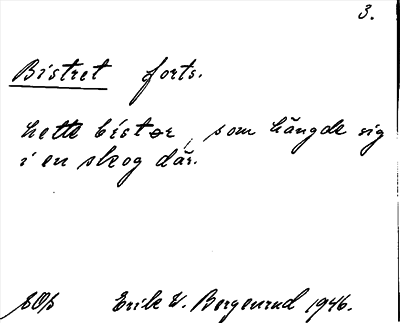 3.
Bistret forts.
hette bistor, som hängde sig
i en skog där.
Erik W. Bergenrud 1946.